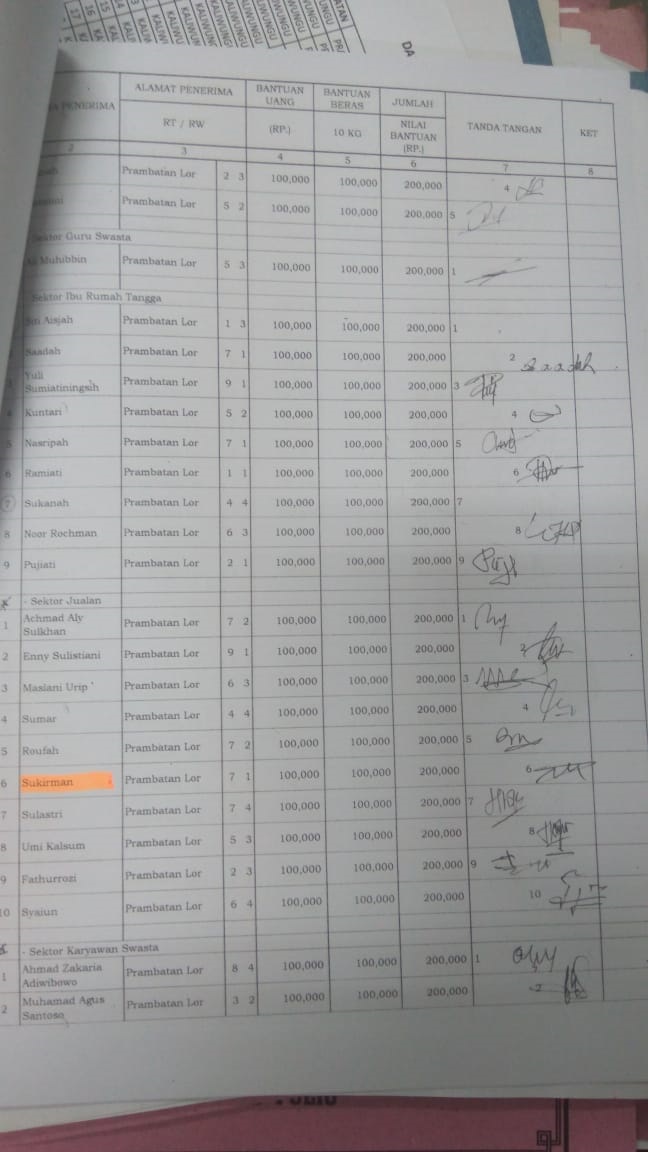 KALIWUNGU
DA
PENERIMA ALAMAT PENERIMA BANTUAN UANG BANTUAN BERAS JUMLAH TANDA TANGAN KET
RT / RW (RP.) 10 KG NILAI BANTUAN (RP.)
2 3 4 5 6 7 8
Prambatan Lor 2 3 100,000 100,000 200,000 4
Prambatan Lor 5 2 100,000 100,000 200,000 5
Sektor Guru Swasta
Muhibbin Prambatan Lor 5 3 100,000 100,000 200,000 1
Sektor Ibu Rumah Tangga
Siti Aisjah Prambatan Lor 1 3 100,000 100,000 200,000 1
Saadah Prambatan Lor 7 1 100,000 100,000 200,000 2 Saadah
Yuli
Sumiatiningsih Prambatan Lor 9 1 100,000 100,000 200,000 3
4 Kuntari Prambatan Lor 5 2 100,000 100,000 200,000 4
5 Nasripah Prambatan Lor 7 1 100,000 100,000 200,000 5
6 Ramiati Prambatan Lor 1 1 100,000 100,000 200,000 6
7 Sukanah Prambatan Lor 4 4 100,000 100,000 200,000 7
8 Noor Rochman Prambatan Lor 6 3 100,000 100,000 200,000 8
9 Pujiati Prambatan Lor 2 1 100,000 100,000 200,000 9
- Sektor Jualan
1 Achmad Aly
Sulkhan Prambatan Lor 7 2 100,000 100,000 200,000 1
2 Enny Sulistiani Prambatan Lor 9 1 100,000 100,000 200,000 2
3 Maslani Urip Prambatan Lor 6 3 100,000 100,000 200,000 3
4 Sumar Prambatan Lor 4 4 100,000 100,000 200,000 4
5 Roufah Prambatan Lor 7 2 100,000 100,000 200,000 5
6 Sukirman Prambatan Lor 7 1 100,000 100,000 200,000 6
7 Sulastri Prambatan Lor 7 4 100,000 100,000 200,000 7
8 Umi Kalsum Prambatan Lor 5 3 100,000 100,000 200,000 8
9 Fathurrozi Prambatan Lor 2 3 100,000 100,000 200,000 9
10 Syaiun Prambatan Lor 6 4 100,000 100,000 200,000 10
- Sektor Karyawan Swasta
1 Ahmad Zakaria
Adiwibowo Prambatan Lor 8 4 100,000 100,000 200,000 1
2 Muhamad Agus
Santoso Prambatan Lor 3 2 100,000 100,000 200,000 2